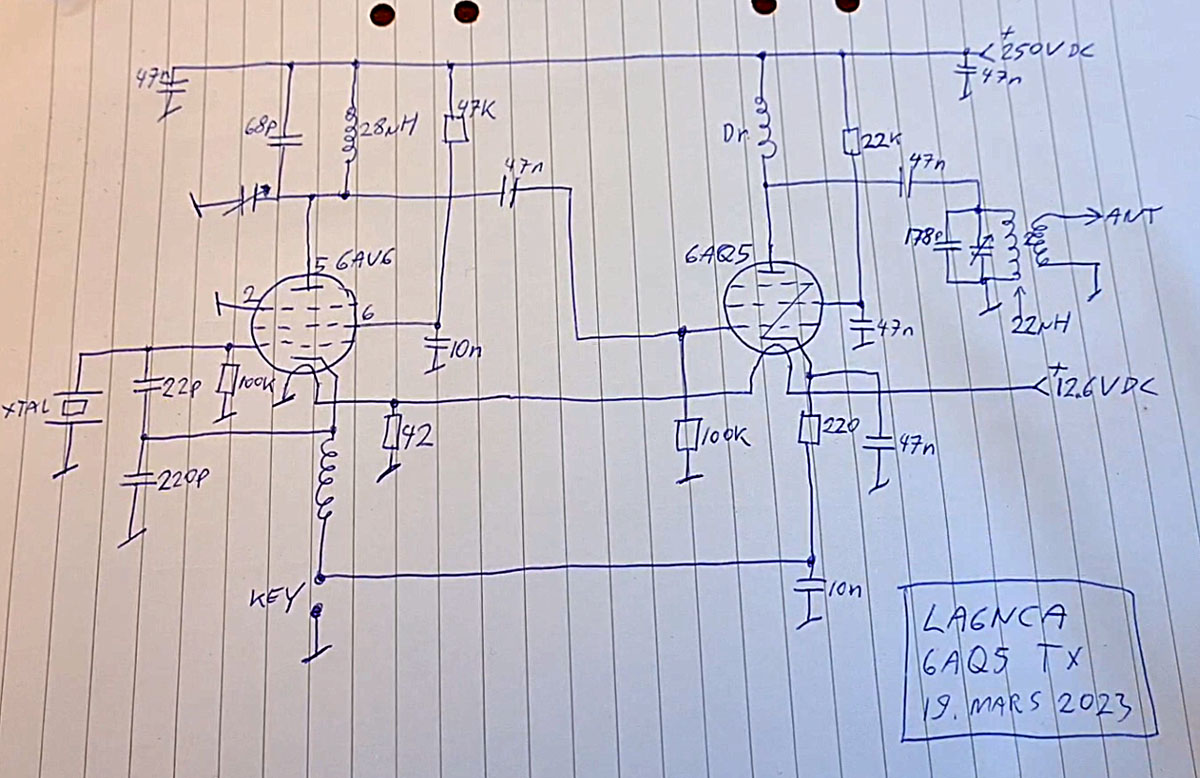 47n
+
<250VDC
47n
68P
28µH
47K
Dr.
22K
47n
47n
178P
ANT
5
6AU6
2
6
6AQ5
22µH
10n
47n
XTAL
22P
100K
+
<12.6VDC
42
100K
220
47n
220P
KEY
10n
LA6NCA
6AQ5 TX
19. MARS 2023